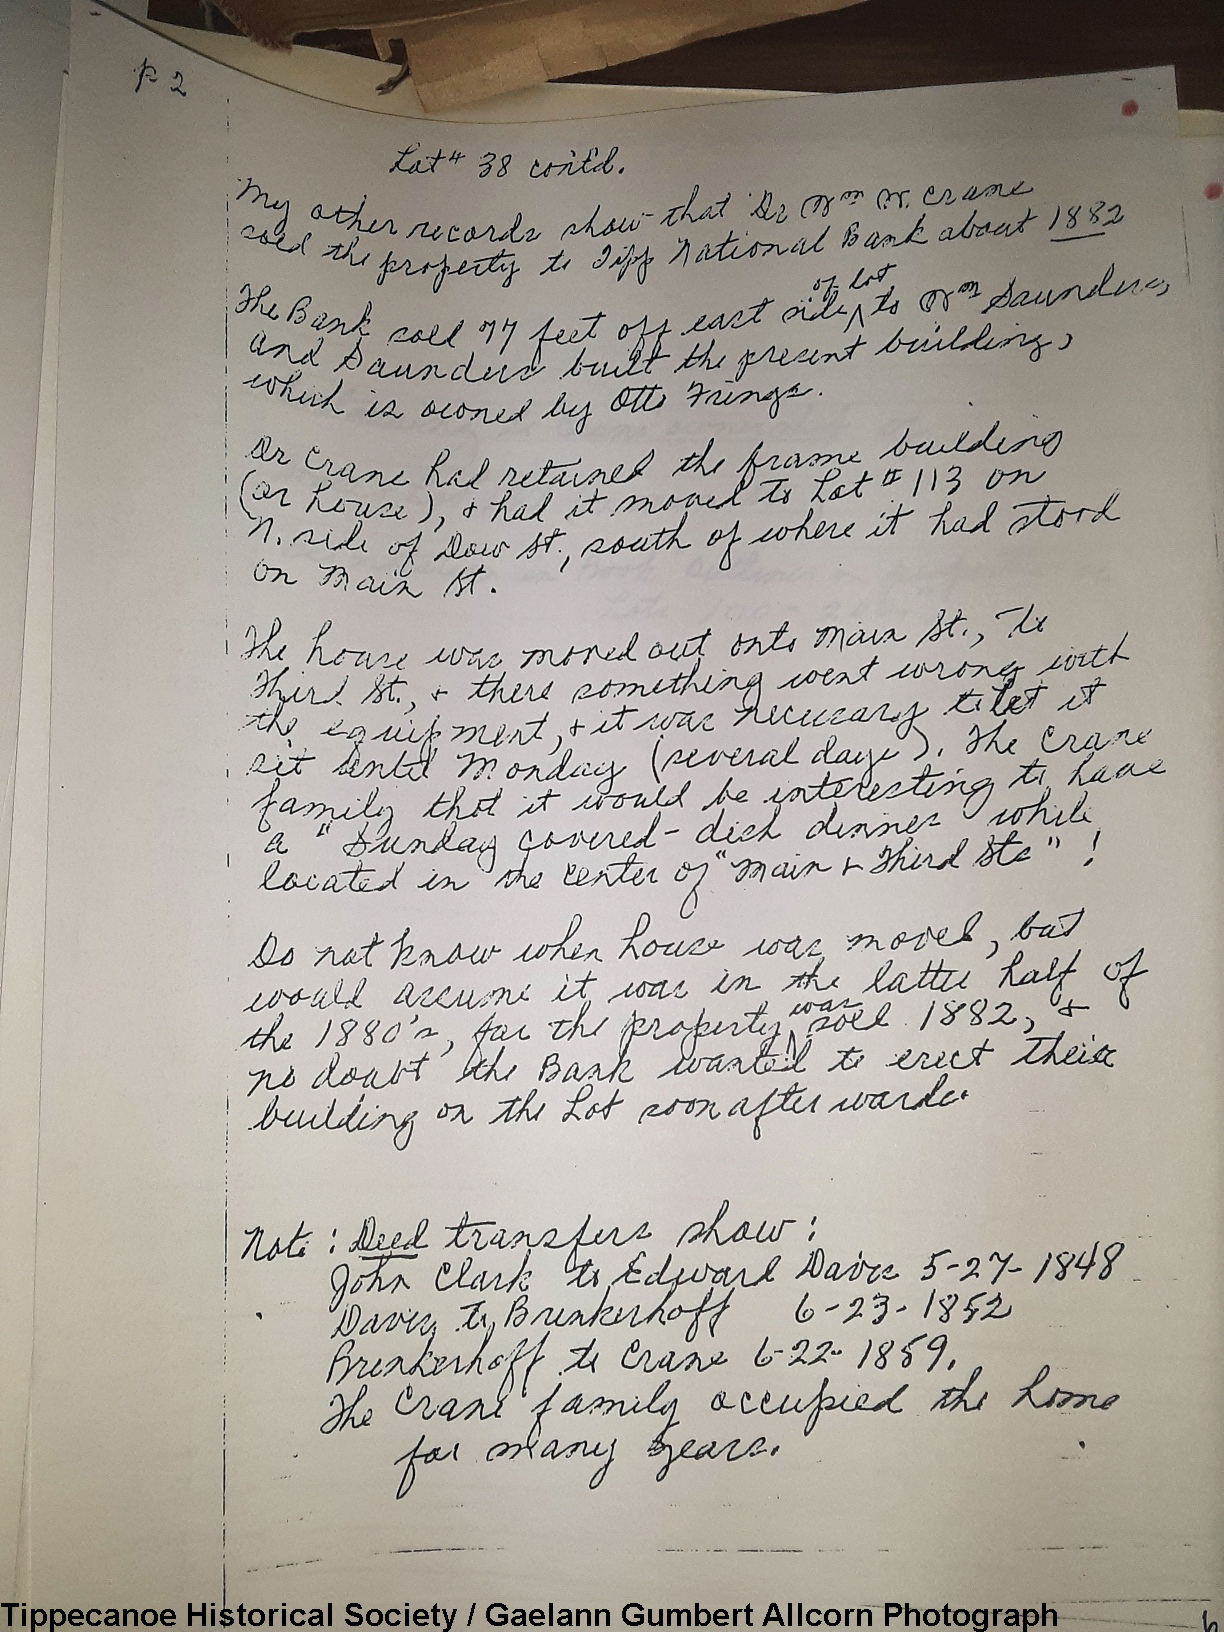 p 2
Lot # 38 cont'd.
My other records show that Dr Wm W. Crane
sold the property to Tipp National Bank about 1882
of lot
The Bank sold 77 feet off east side ^ to Wm Saunders,
and Saunders built the present building,
which is owned by Otto Frings.
Dr Crane had retained the frame building
(or house), & had it moved to Lot # 113 on
N. side of Dow St., south of where it had stood
on Main St.
The house was moved out onto Main St., to
Third St., & there something went wrong with
the equipment, & it was necessary to let it
sit until Monday (several days). The Crane
family thot it would be interesting to have
a "Sunday covered-dish dinner while
located in the center of "Main & Third Sts" !
Do not know when house was moved, but
would assume it was in the latter half of
the 1880's, for the property ^ was sold 1882, &
no doubt the Bank wanted to erect their
building on the Lot soon after wards.
Note : Deed transfers show :
John Clark to Edward Davis 5-27-1848
Davis to Brinkerhoff 6-23-1852
Brinkerhoff to Crane 6-22-1859.
The Crane family occupied the home
for many years.
Tippecanoe Historical Society / Gaelann Gumbert Allcorn Photograph